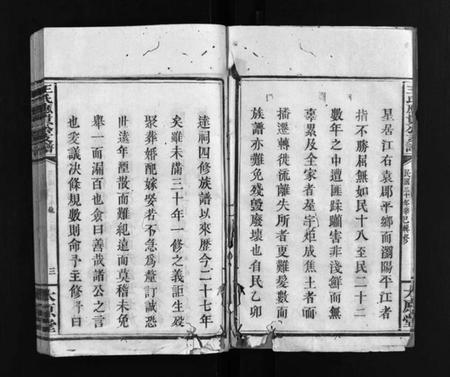 星居江右袁郡平鄉而瀏陽平江者
指不勝屈無如民十八至民二十二
數年之中遭匪踩躪害非淺鮮而無
辜累及全家者屋宇炬成焦土者而
播遷轉徙流離失所者更難髮數而
族譜亦難免殘毀廢壞也自民乙卯
達祠四修族譜以來歷今二十七年
矣雖未滿三十年一修之義詎生歿
聚葬婚配嫁娶若不急為釐訂誠恐
世遠年湮散而難紀遠而莫稽未免
舉一而漏百也僉曰善哉諸公之言
也爰議決條規數則命予主修予曰
太原堂
三
太原堂